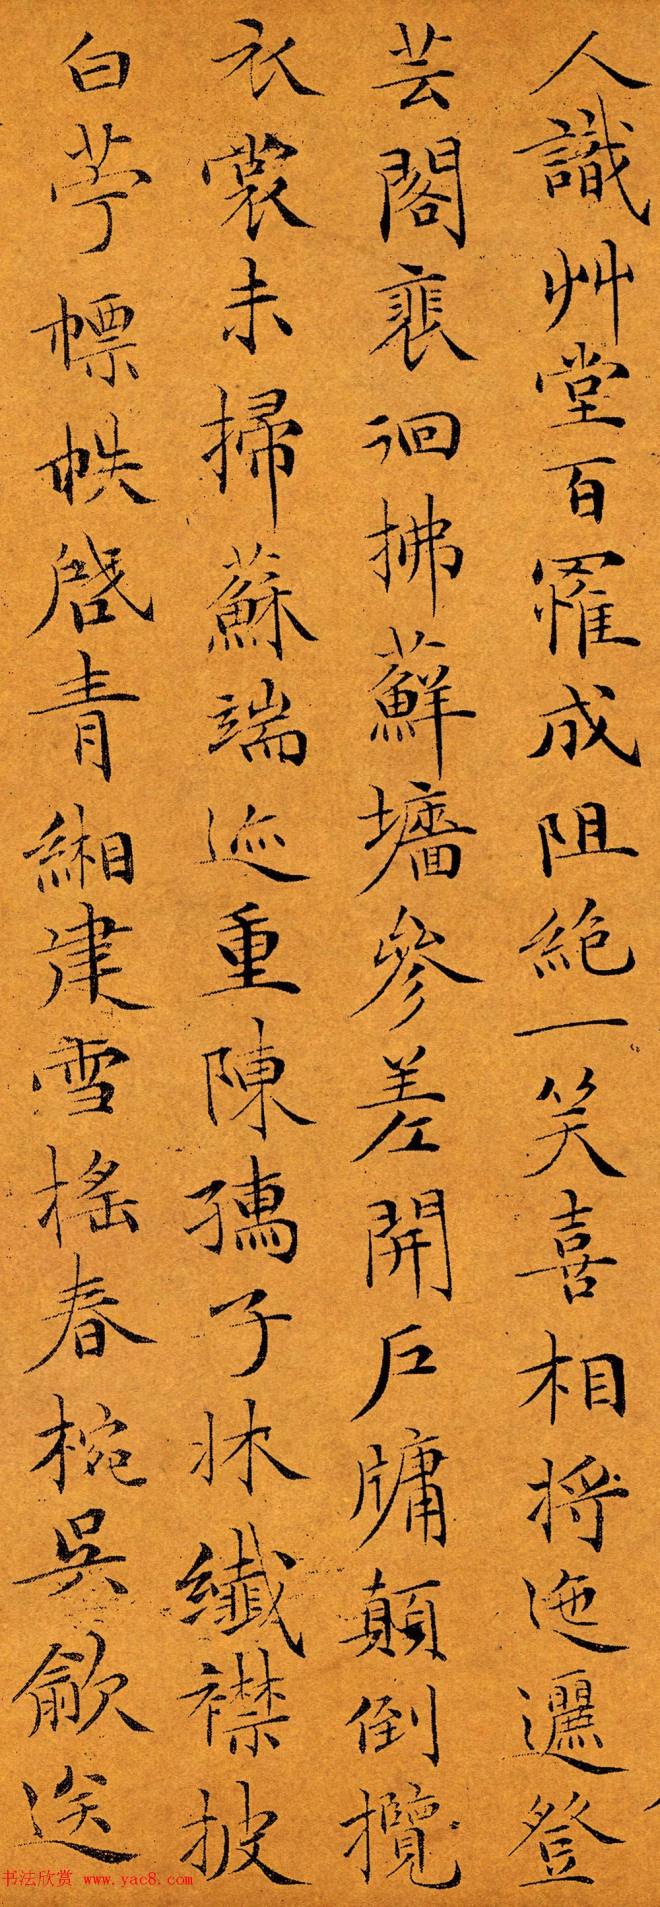 人識艸堂百罹成阻絶一笑喜相將迤邐登
芸閣裵徊拂蘚墻參差開戶牖顛倒攬
衣裳未掃蘇端迹重陳孺子牀纖襟披
白苧幖帙啓青緗建雪搖春椀吳歈送
书法欣赏 www.yac8.com